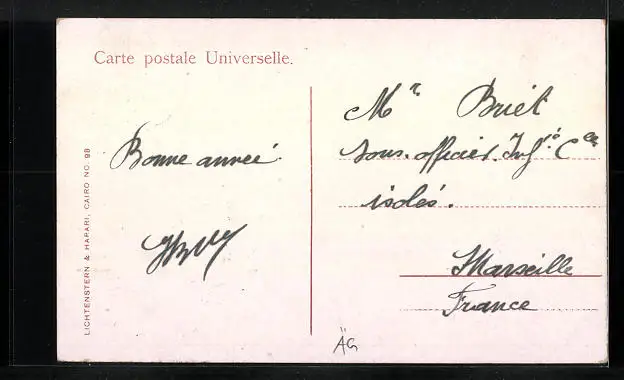 Carte postale Universelle.
LICHTENSTERN & HARARI, CAIRO NO. 98
Bonne année
Mr Briet
Sous. officier. Inf. Cie
isolés.
Marseille
France
ÄG